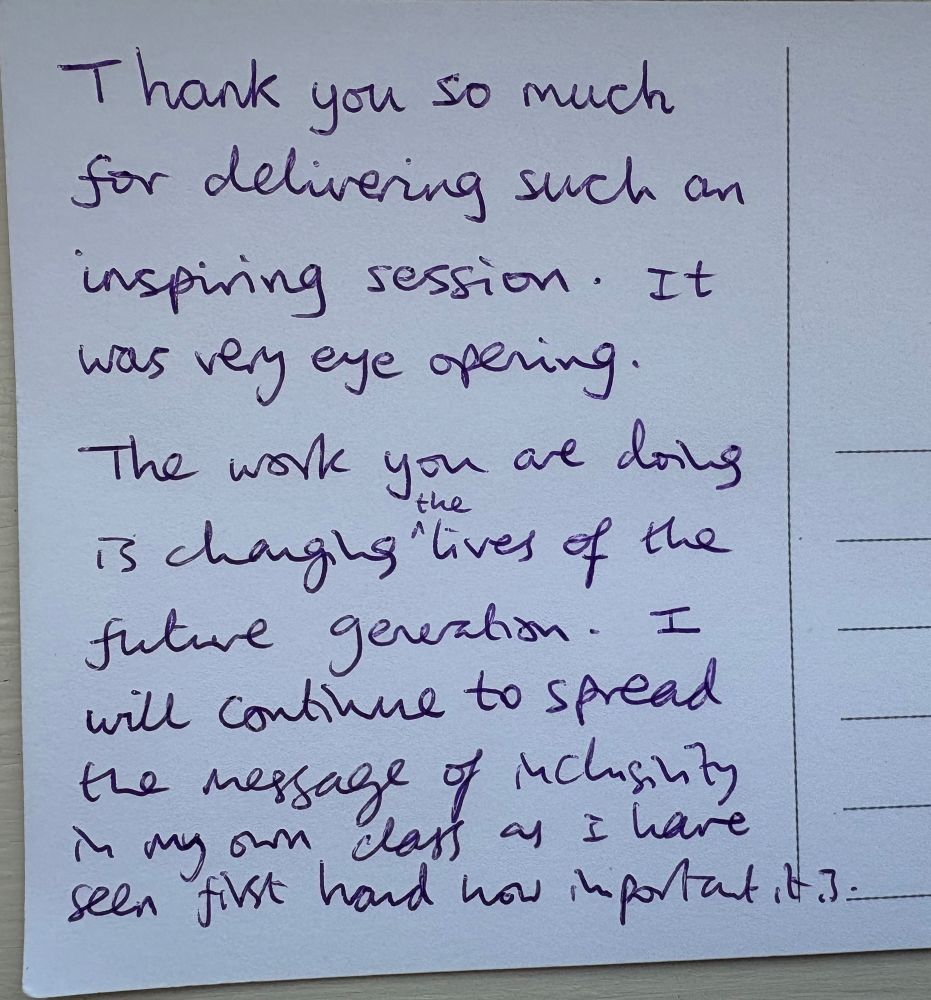 Thank you so much
for delivering such an
inspiring session. It
was very eye opening.
The work you are doing
is changing ^the lives of the
future generation. I
will continue to spread
the message of inclusivity
in my own class as I have
seen first hand how important it is.